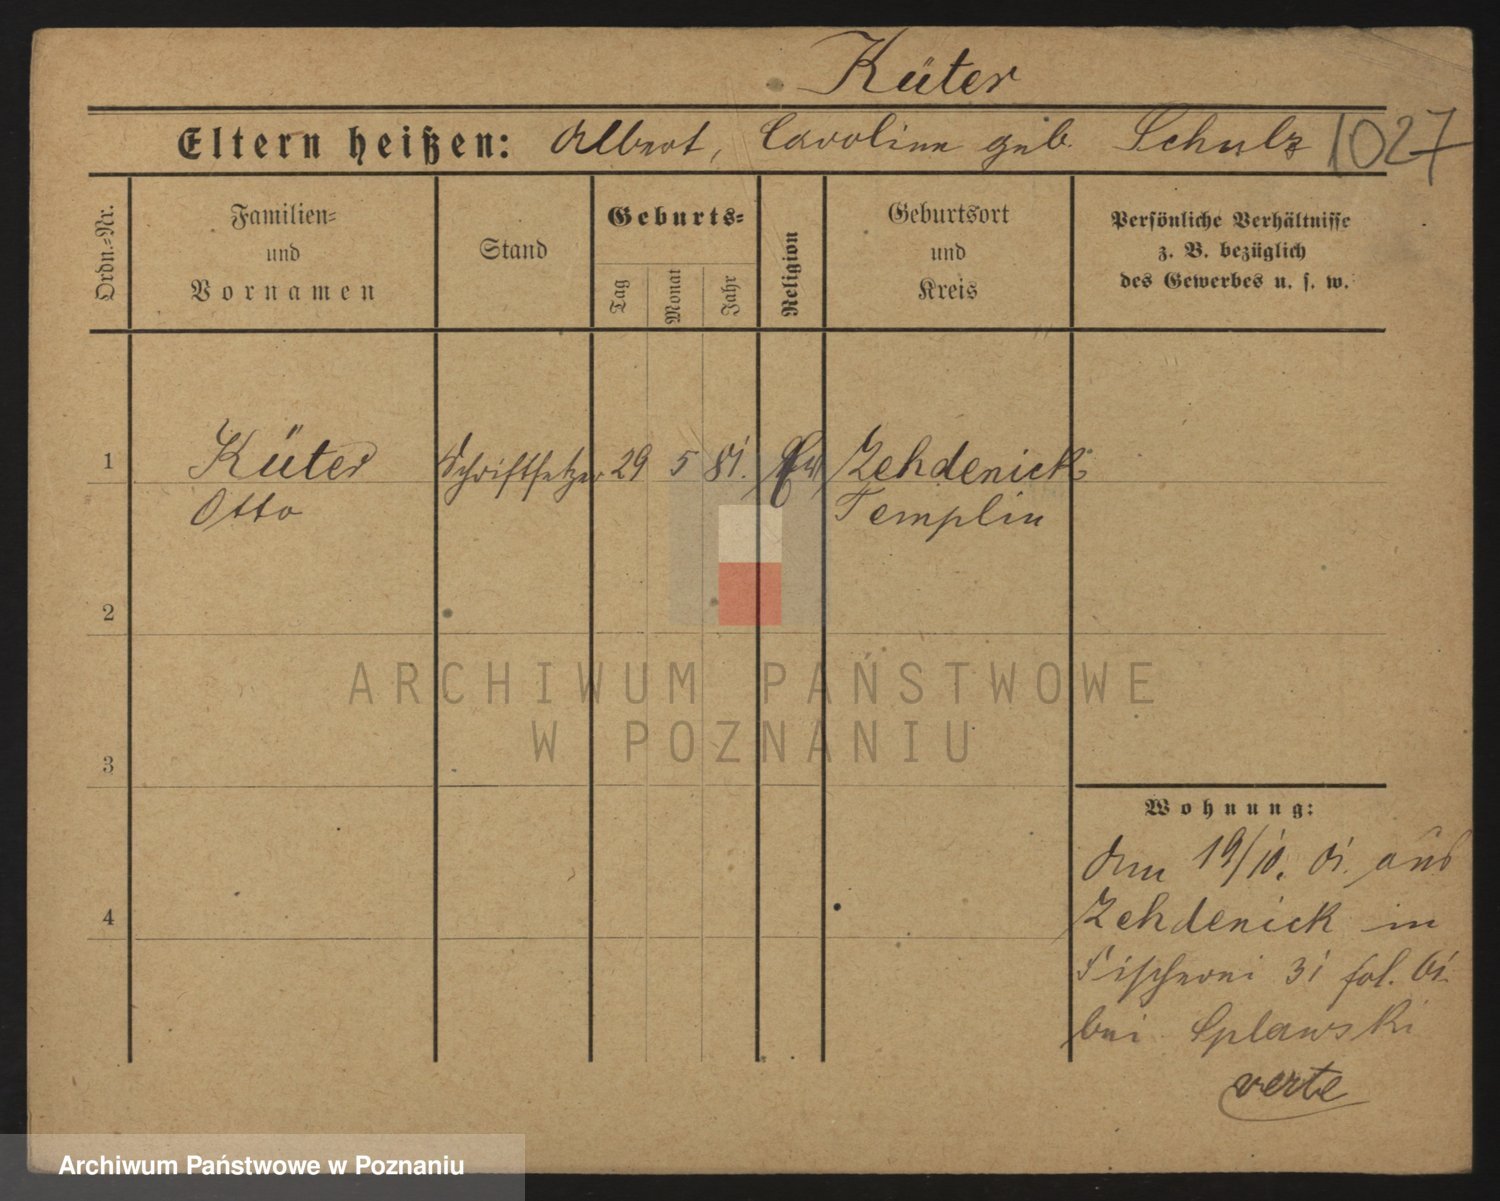 Küter
Eltern heißen: Albert, Caroline geb. Schulz 1027
Ordn.=Nr.
Familien=
und
Vornamen
Stand
Geburts=
Tag
Monat
Jahr
Religion
Geburtsort
und
Kreis
Persönliche Verhältnisse
z. B. bezüglich
des Gewerbes u. s. w.
1 Küter Schriftsetzer 29 5 81. Ev Zehdenick
Otto Templin
2
3
4
ARCHIWUM PAŃSTWOWE
W POZNANIU
Wohnung:
Am 19/10. 01. aus
Zehdenick in
Fischerei 31 fol. 61.
bei Splawski
verte
Archiwum Państwowe w Poznaniu